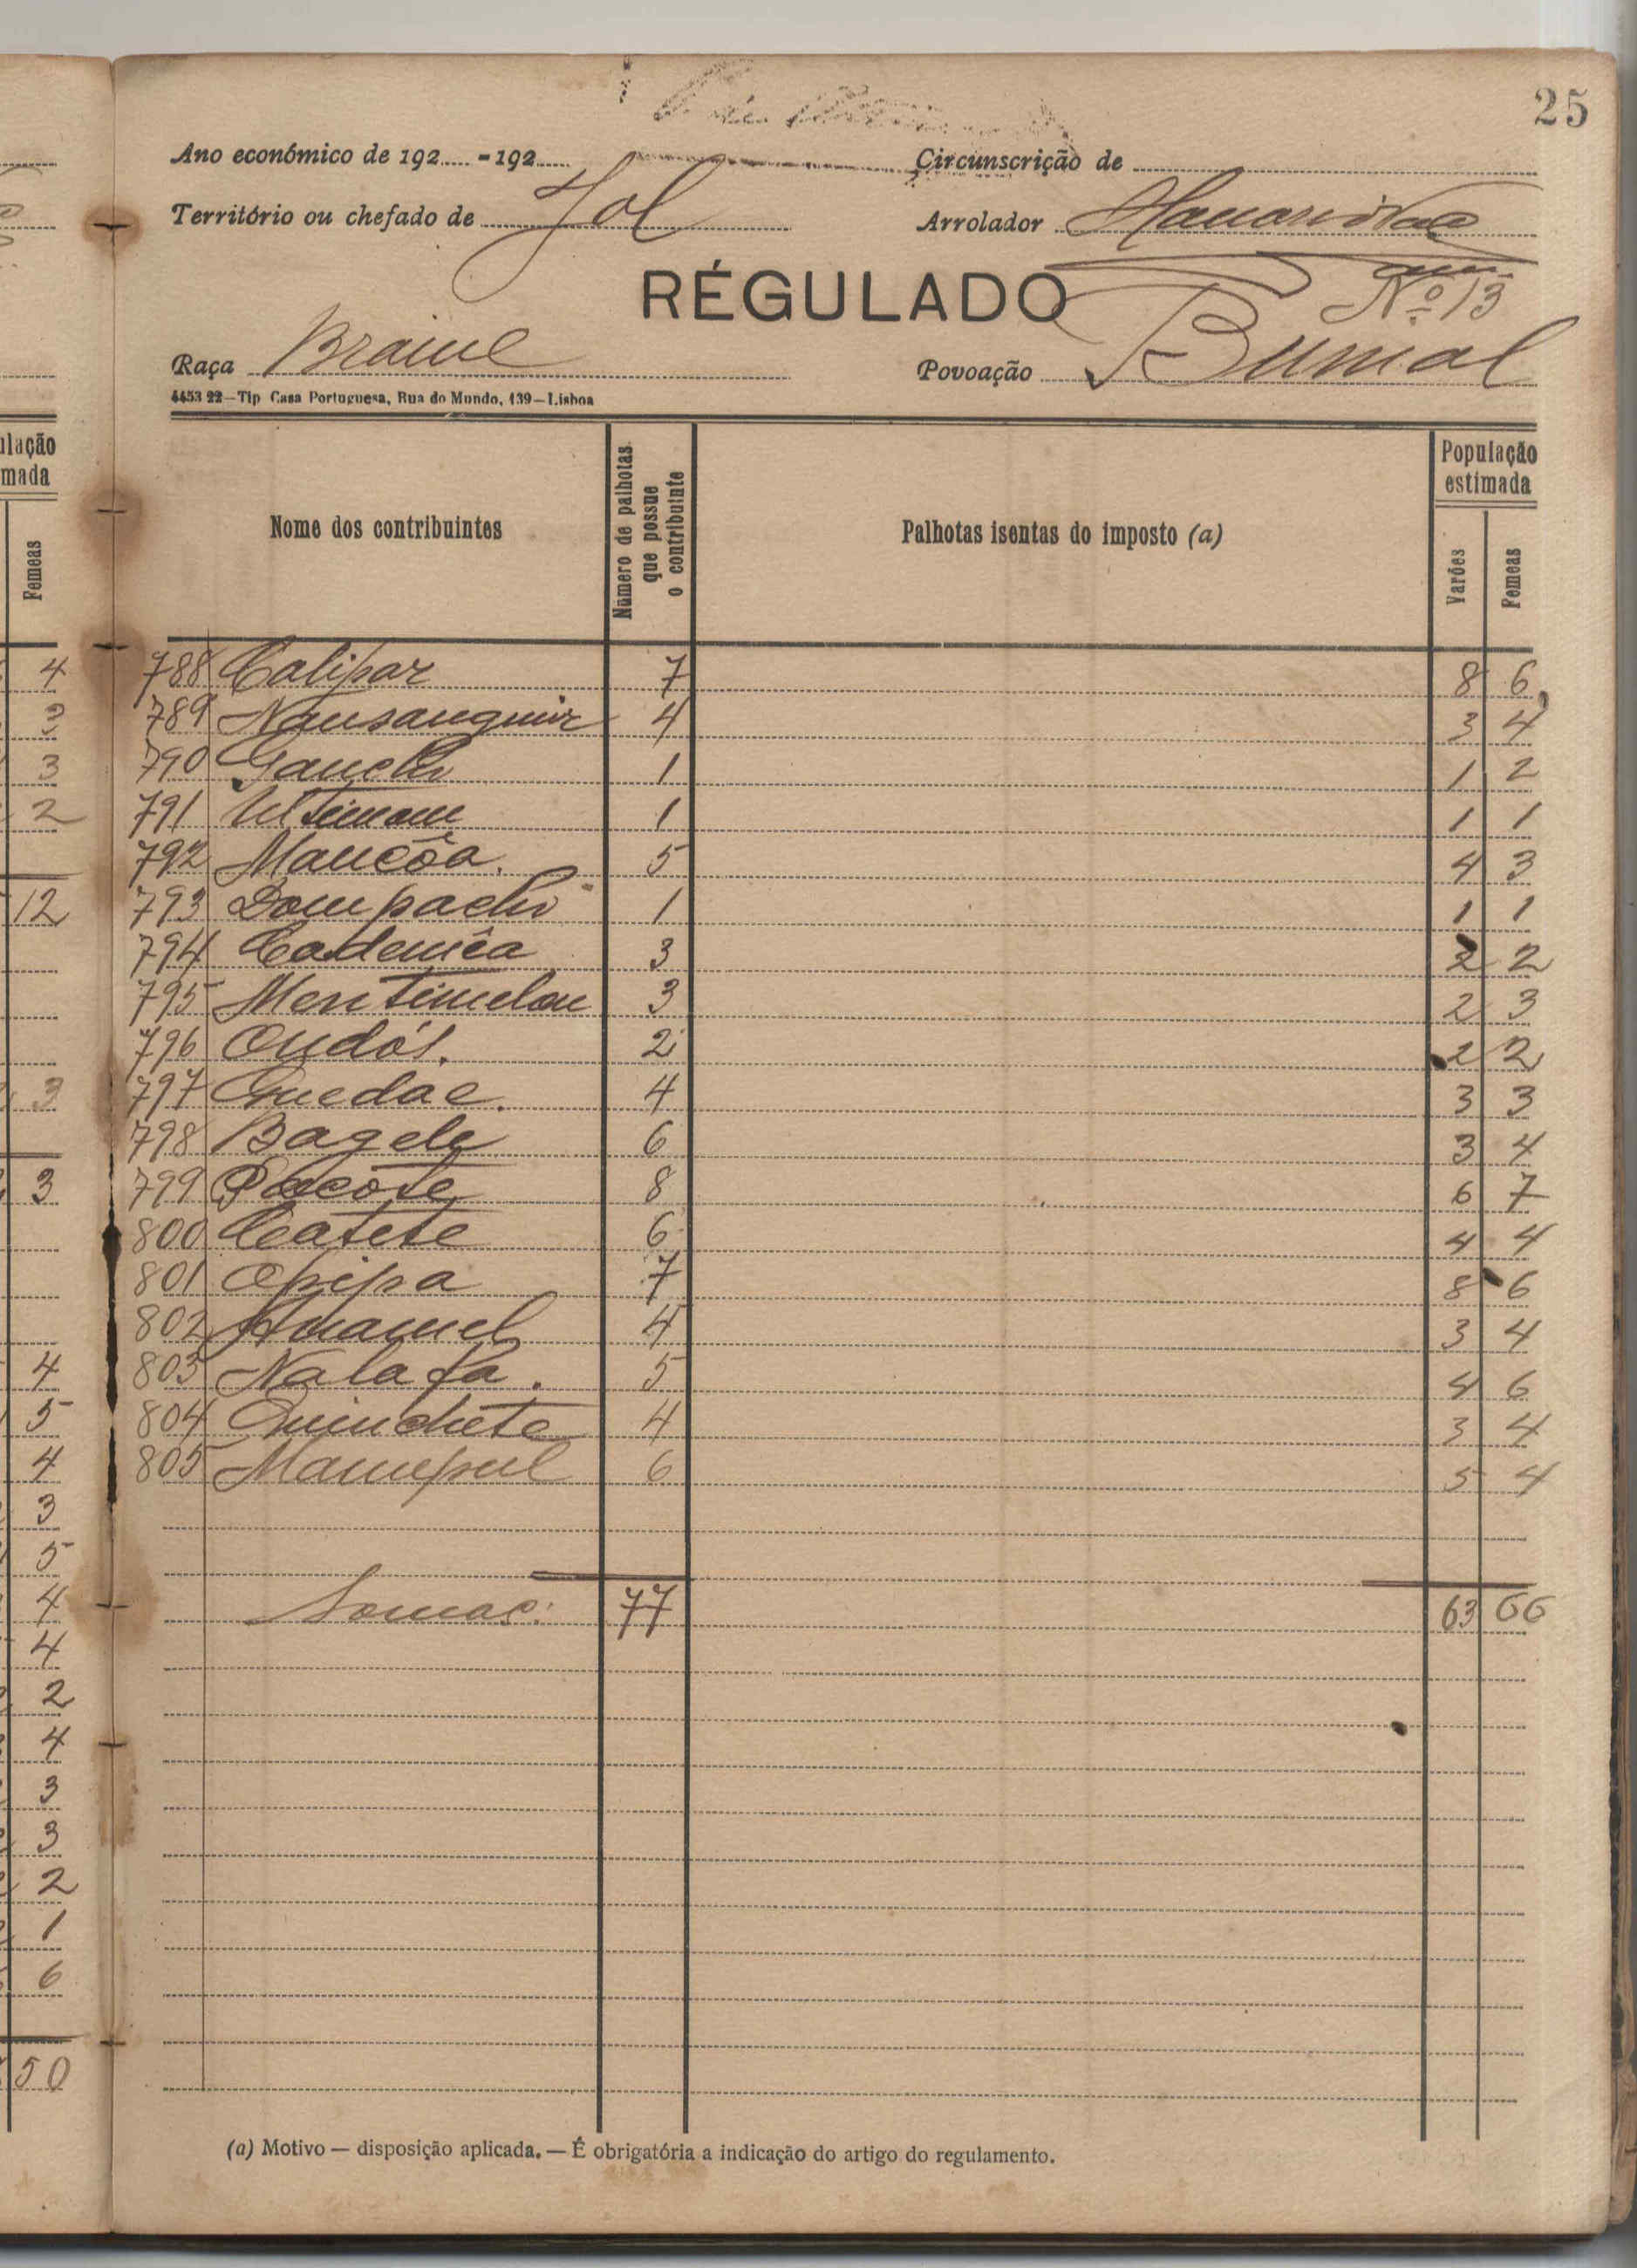 25
Ano económico de 192..... - 192..... Circunscrição de
Território ou chefado de Jol Arrolador
RÉGULADO
Nº 13
Raça Brame Povoação Bumal
4453 22—Tip Casa Portuguesa, Rua do Mundo, 139—Lisboa
Nome dos contribuintes Número de palhotas que possue o contribuinte Palhotas isentas do imposto (a) População estimada Varões Femeas
788 Calipar 7 8 6
789 Nansanguir 4 3 4
790 1 1 2
791 1 1 1
792 Mancôa. 5 4 3
793 Dompachi 1 1 1
794 Cademêa 3 2 2
795 3 2 3
796 Ondól. 2 2 2
797 4 3 3
798 Bagele 6 3 4
799 Pacóte 8 6 7
800 Catete 6 4 4
801 Opipa 7 8 6
802 4 3 4
803 Nalafa. 5 4 6
804 Quinchete 4 3 4
805 6 5 4
Somas: 77 63 66
(a) Motivo — disposição aplicada. — É obrigatória a indicação do artigo do regulamento.
ulação
mada
Femeas
4
3
3
2
12
3
3
4
5
4
3
5
4
4
2
4
3
3
2
1
6
50